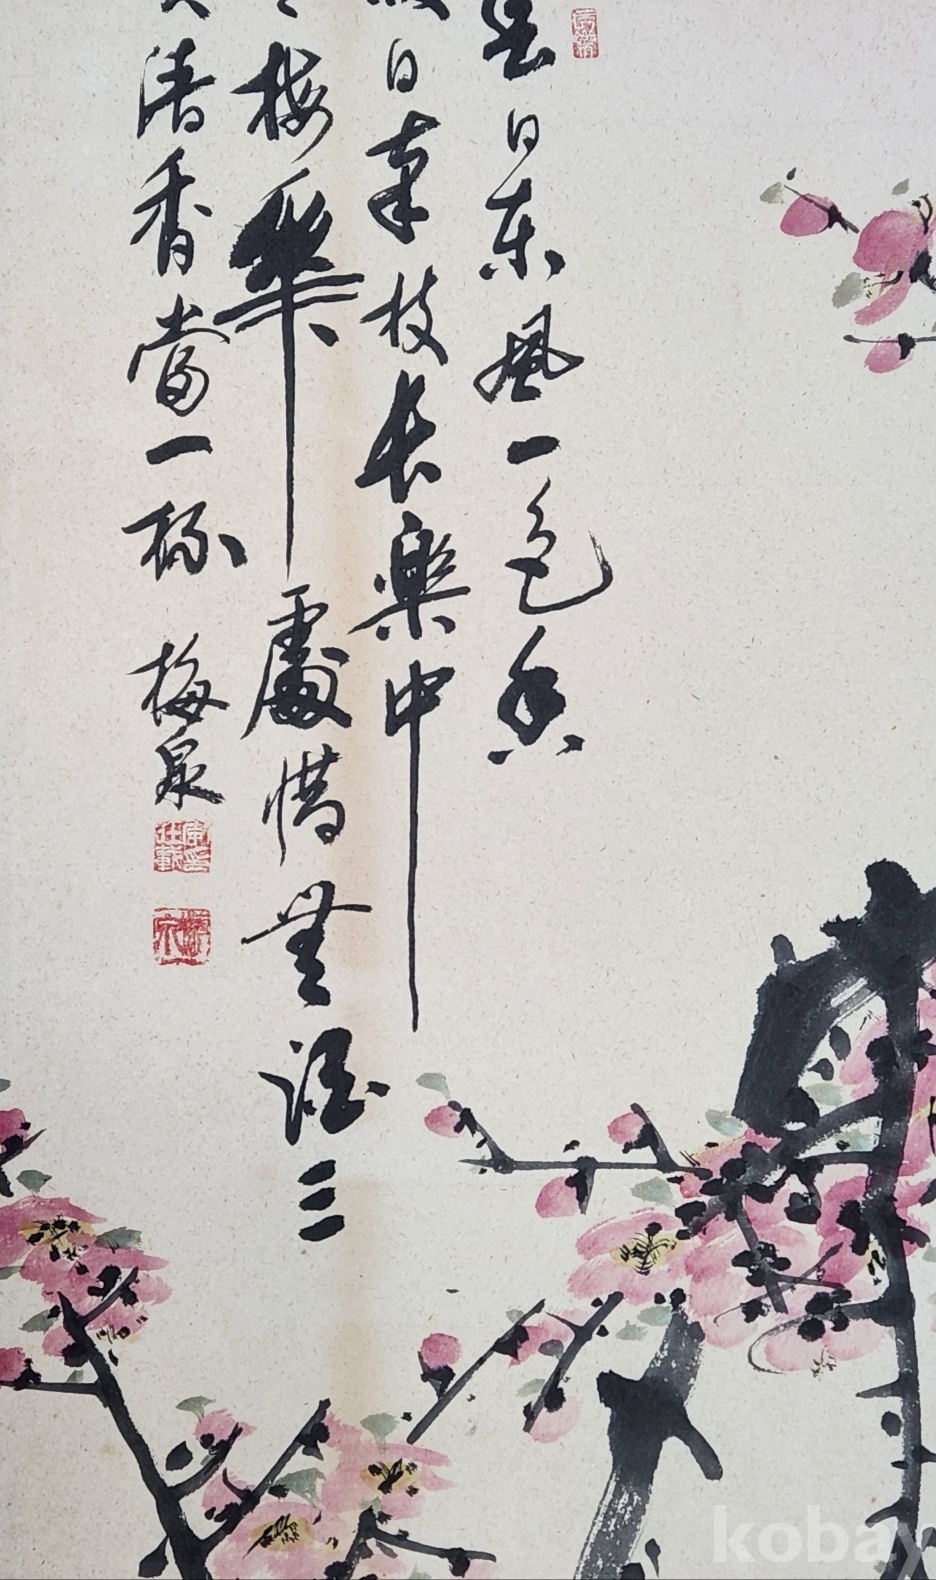 日東風一色香
日南枝長樂中
梅華處惜無酒三
清香當一杯 梅泉
kobay